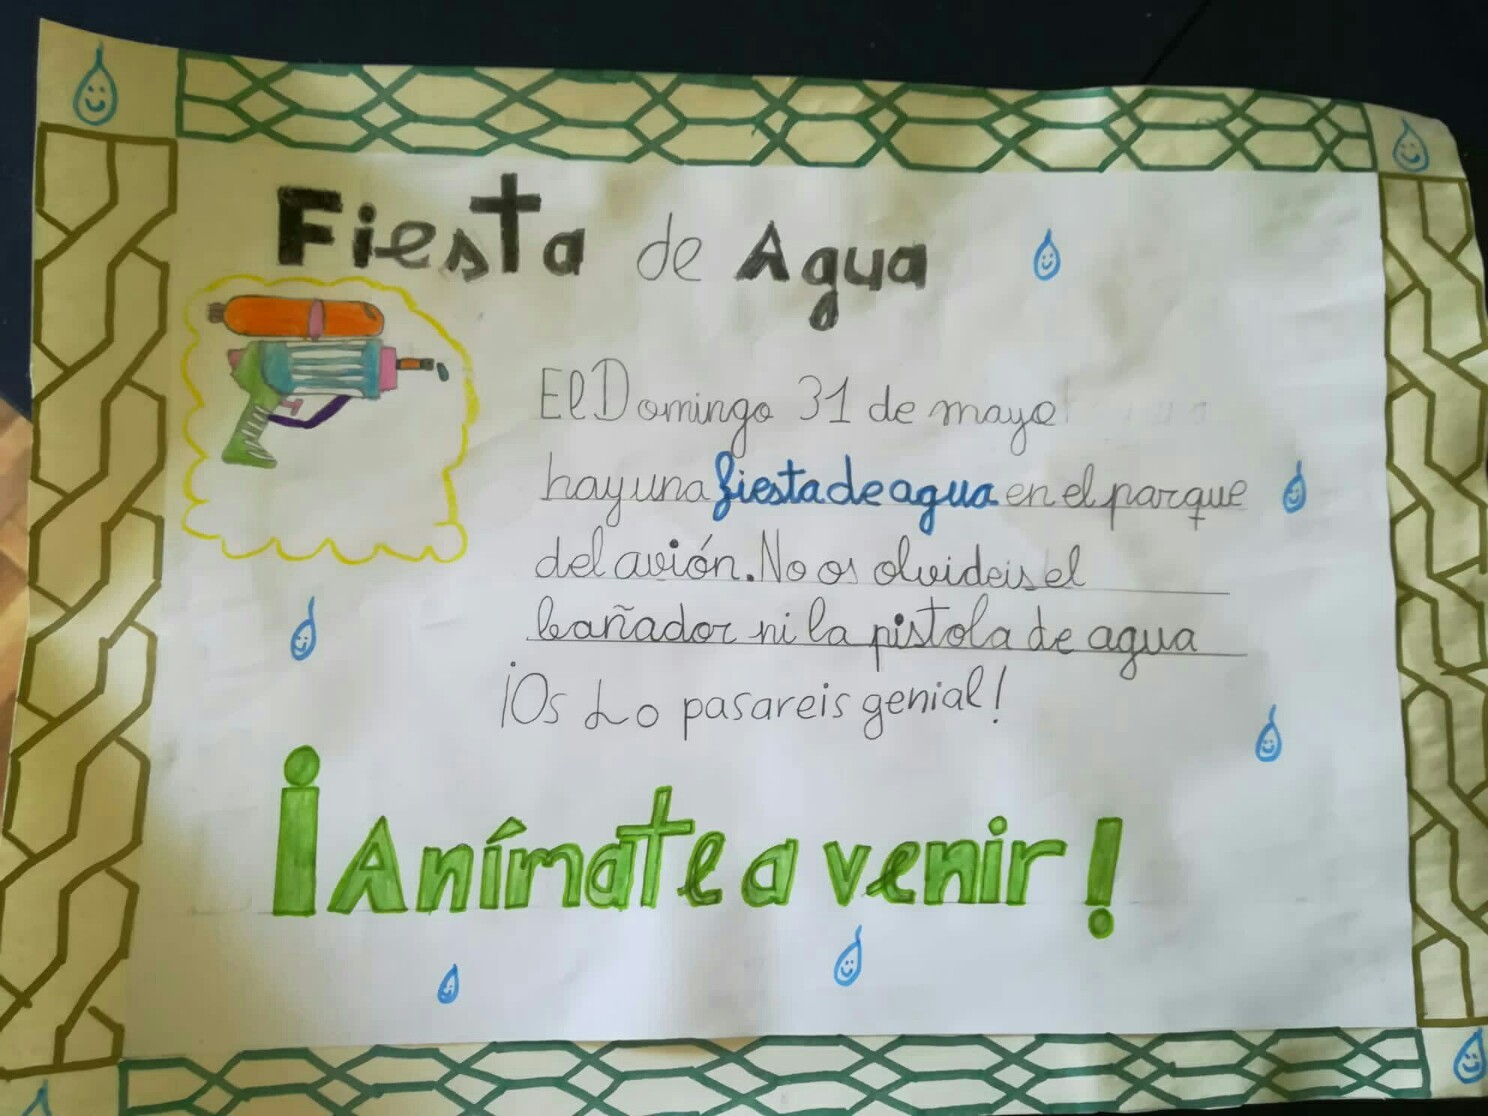 Fiesta de Agua
El Domingo 31 de mayo
hay una fiesta de agua en el parque
del avión. No os olvideis el
bañador ni la pistola de agua
¡Os Lo pasareis genial!
¡Anímate a venir!